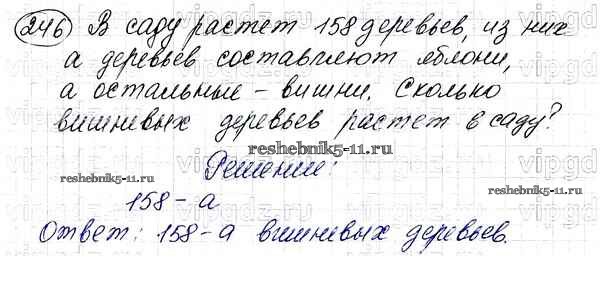 246 В саду растет 158 деревьев, из них
а деревьев составляют яблони,
а остальные – вишни. Сколько
вишневых деревьев растет в саду?
reshebnik5-11.ru
Решение:
reshebnik5-11.ru
reshebnik5-11.ru
158 – а
Ответ: 158 – а вишневых деревьев.